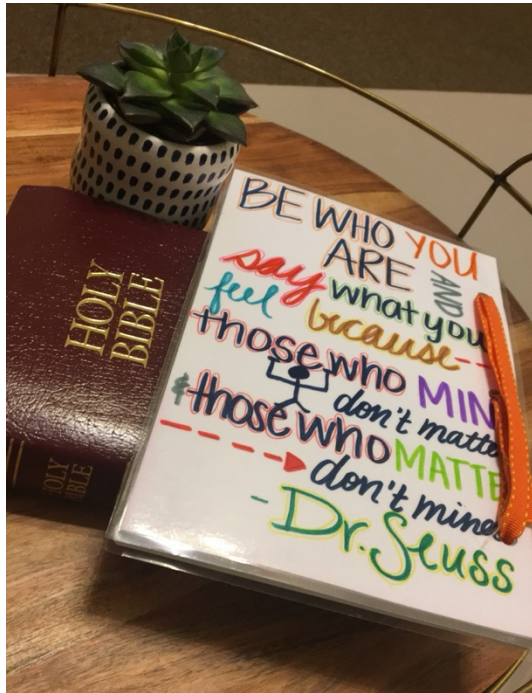 HOLY
BIBLE
HOLY
BIBLE
BE WHO YOU
ARE AND
say what you
feel because
those who MIN
don't matte
& those who MATTE
don't
- Dr. Seuss